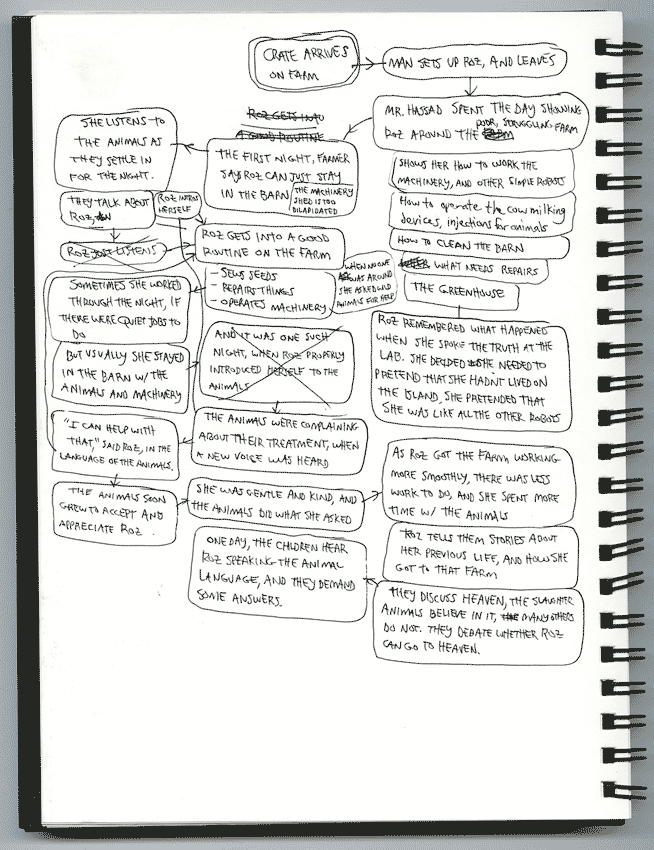 CRATE ARRIVES
ON FARM
MAN SETS UP ROZ, AND LEAVES
MR. HASSAD SPENT THE DAY SHOWING
ROZ AROUND THE POOR, STRUGGLING FARM
SHOWS HER HOW TO WORK THE
MACHINERY, AND OTHER SIMPLE ROBOTS
How to operate the cow milking
devices, injections for animals
HOW TO CLEAN THE BARN
WHAT NEEDS REPAIRS
THE GREENHOUSE
ROZ REMEMBERED WHAT HAPPENED
WHEN SHE SPOKE THE TRUTH AT THE
LAB. SHE DECIDED SHE NEEDED TO
PRETEND THAT SHE HADN'T LIVED ON
THE ISLAND, SHE PRETENDED THAT
SHE WAS LIKE ALL THE OTHER ROBOTS
ROZ GETS INTO
A GOOD ROUTINE
THE FIRST NIGHT, FARMER
SAYS ROZ CAN JUST STAY
IN THE BARN
THE MACHINERY
SHED IS TOO
DILAPIDATED
SHE LISTENS TO
THE ANIMALS AS
THEY SETTLE IN
FOR THE NIGHT.
THEY TALK ABOUT
ROZ,
ROZ INTROS
HERSELF
ROZ JUST LISTENS
ROZ GETS INTO A GOOD
ROUTINE ON THE FARM
- SEWS SEEDS
- REPAIRS THINGS
- OPERATES MACHINERY
WHEN NO ONE
WAS AROUND
SHE ASKED WILD
ANIMALS FOR HELP
SOMETIMES SHE WORKED
THROUGH THE NIGHT, IF
THERE WERE QUIET JOBS TO
DO
BUT USUALLY SHE STAYED
IN THE BARN W/ THE
ANIMALS AND MACHINERY
AND IT WAS ONE SUCH
NIGHT, WHEN ROZ PROPERLY
INTRODUCED HERSELF TO THE
ANIMALS
THE ANIMALS WERE COMPLAINING
ABOUT THEIR TREATMENT, WHEN
A NEW VOICE WAS HEARD
"I CAN HELP WITH
THAT," SAID ROZ, IN THE
LANGUAGE OF THE ANIMALS.
THE ANIMALS SOON
GREW TO ACCEPT AND
APPRECIATE ROZ.
SHE WAS GENTLE AND KIND, AND
THE ANIMALS DID WHAT SHE ASKED
AS ROZ GOT THE FARM WORKING
MORE SMOOTHLY, THERE WAS LESS
WORK TO DO, AND SHE SPENT MORE
TIME W/ THE ANIMALS
ROZ TELLS THEM STORIES ABOUT
HER PREVIOUS LIFE, AND HOW SHE
GOT TO THAT FARM
THEY DISCUSS HEAVEN, THE SLAUGHTER
ANIMALS BELIEVE IN IT, MANY OTHERS
DO NOT. THEY DEBATE WHETHER ROZ
CAN GO TO HEAVEN.
ONE DAY, THE CHILDREN HEAR
ROZ SPEAKING THE ANIMAL
LANGUAGE, AND THEY DEMAND
SOME ANSWERS.